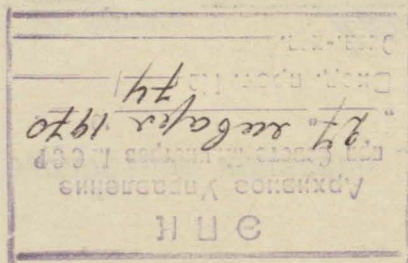 ЭПК
Архивное Управление
при Совете Министров ССР
"27" января 1970
прот. № 74